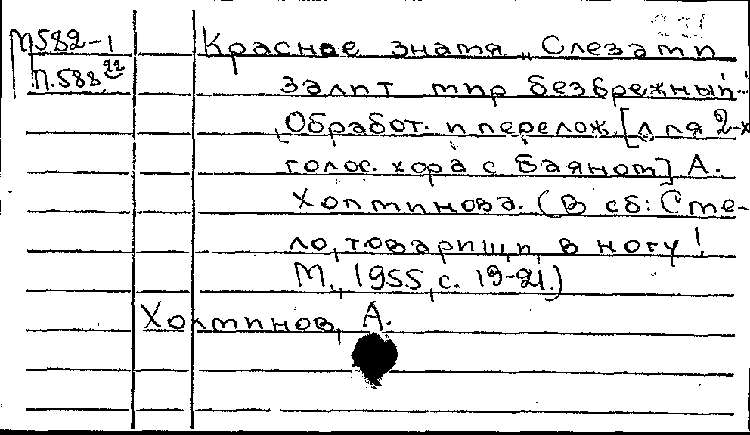 М582-1
П.588²²
Красное знамя „Слезами
залит мир безбрежный..
Обработ. и перелож. [для 2-х
голос. хора с баяном] А.
Холминова. (В сб: Сме-
ло, товарищи, в ногу!
М., 1955, с. 19-21.)
Холминов, А.